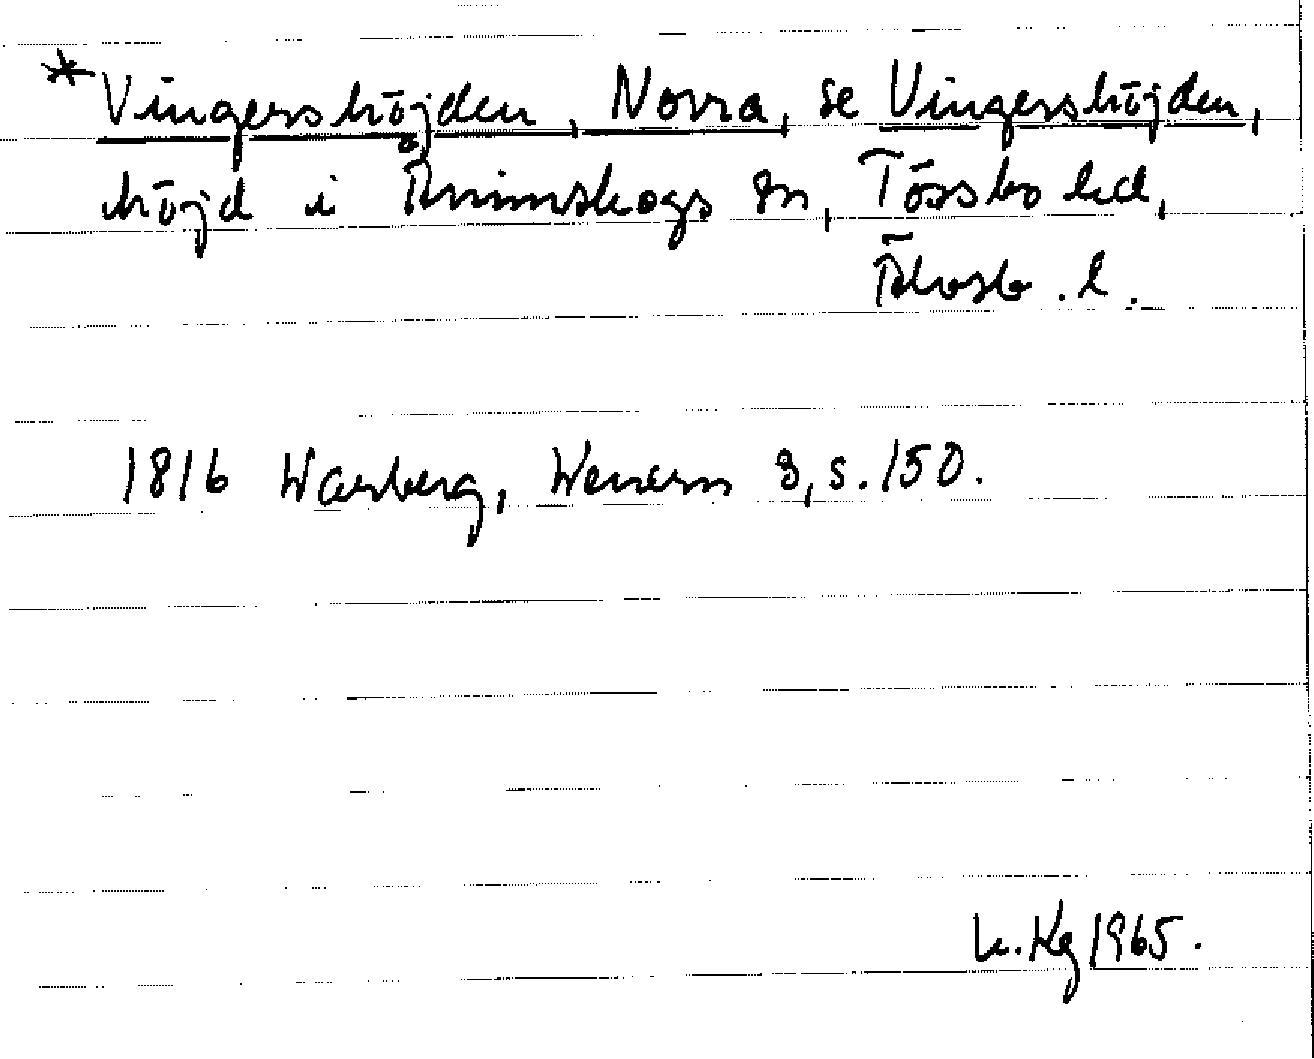 *Vingershöjden, Norra, se Vingershöjden,
höjd i Ånimskogs sn, Tössbo hd,
Älvsb. l.
1816 Warberg, Wenern 3, s. 150.
Kg 1965.